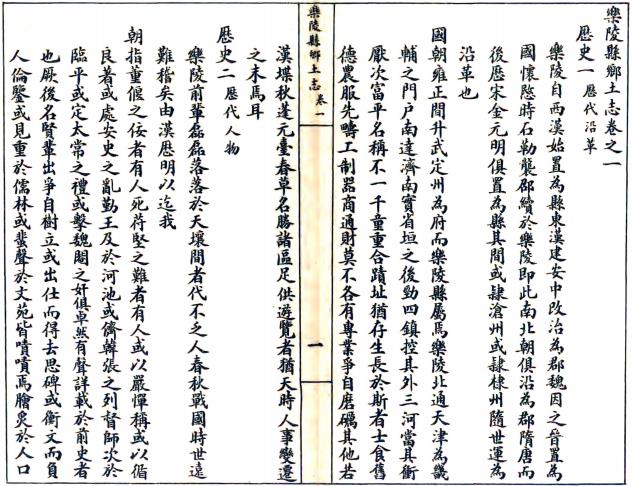 樂陵縣鄉土志卷之一
歷史一 歷代沿革
樂陵自西漢始置為縣東漢建安中改治為郡魏因之晉置為
國懷愍時石勒襲邵續於樂陵即此南北朝俱沿為郡隋唐而
後歷宋金元明俱置為縣其間或隸滄州或隸棣州隨世運為
沿革也
國朝雍正間升武定州為府而樂陵縣屬焉樂陵北通天津為畿
輔之門戶南達濟南實省垣之後勁四鎮控其外三河當其衝
厭次富平名稱不一千童重合蹟址猶存生長於斯者士食舊
德農服先疇工制器商通財莫不各有專業爭自磨礪其他若
樂陵縣鄉土志 卷一
一
漢堞秋蓬元臺春草名勝諸區足供遊覽者猶天時人事變遷
之末焉耳
歷史二 歷代人物
樂陵前輩磊磊落落於天壤間者代不乏人春秋戰國時世遠
難稽矣由漢歷明以迄我
朝指董偃之佞者有人死苻堅之難者有人或以嚴憚稱或以循
良著或處安史之亂勤王及於河池或儕韓張之列督師次於
臨平或定太常之禮或擊魏閹之奸俱卓然有聲詳載於前史者
也厥後名賢輩出爭自樹立或出仕而得去思碑或衡文而負
人倫鑒或見重於儒林或蜚聲於文苑皆嘖嘖焉膾炙於人口